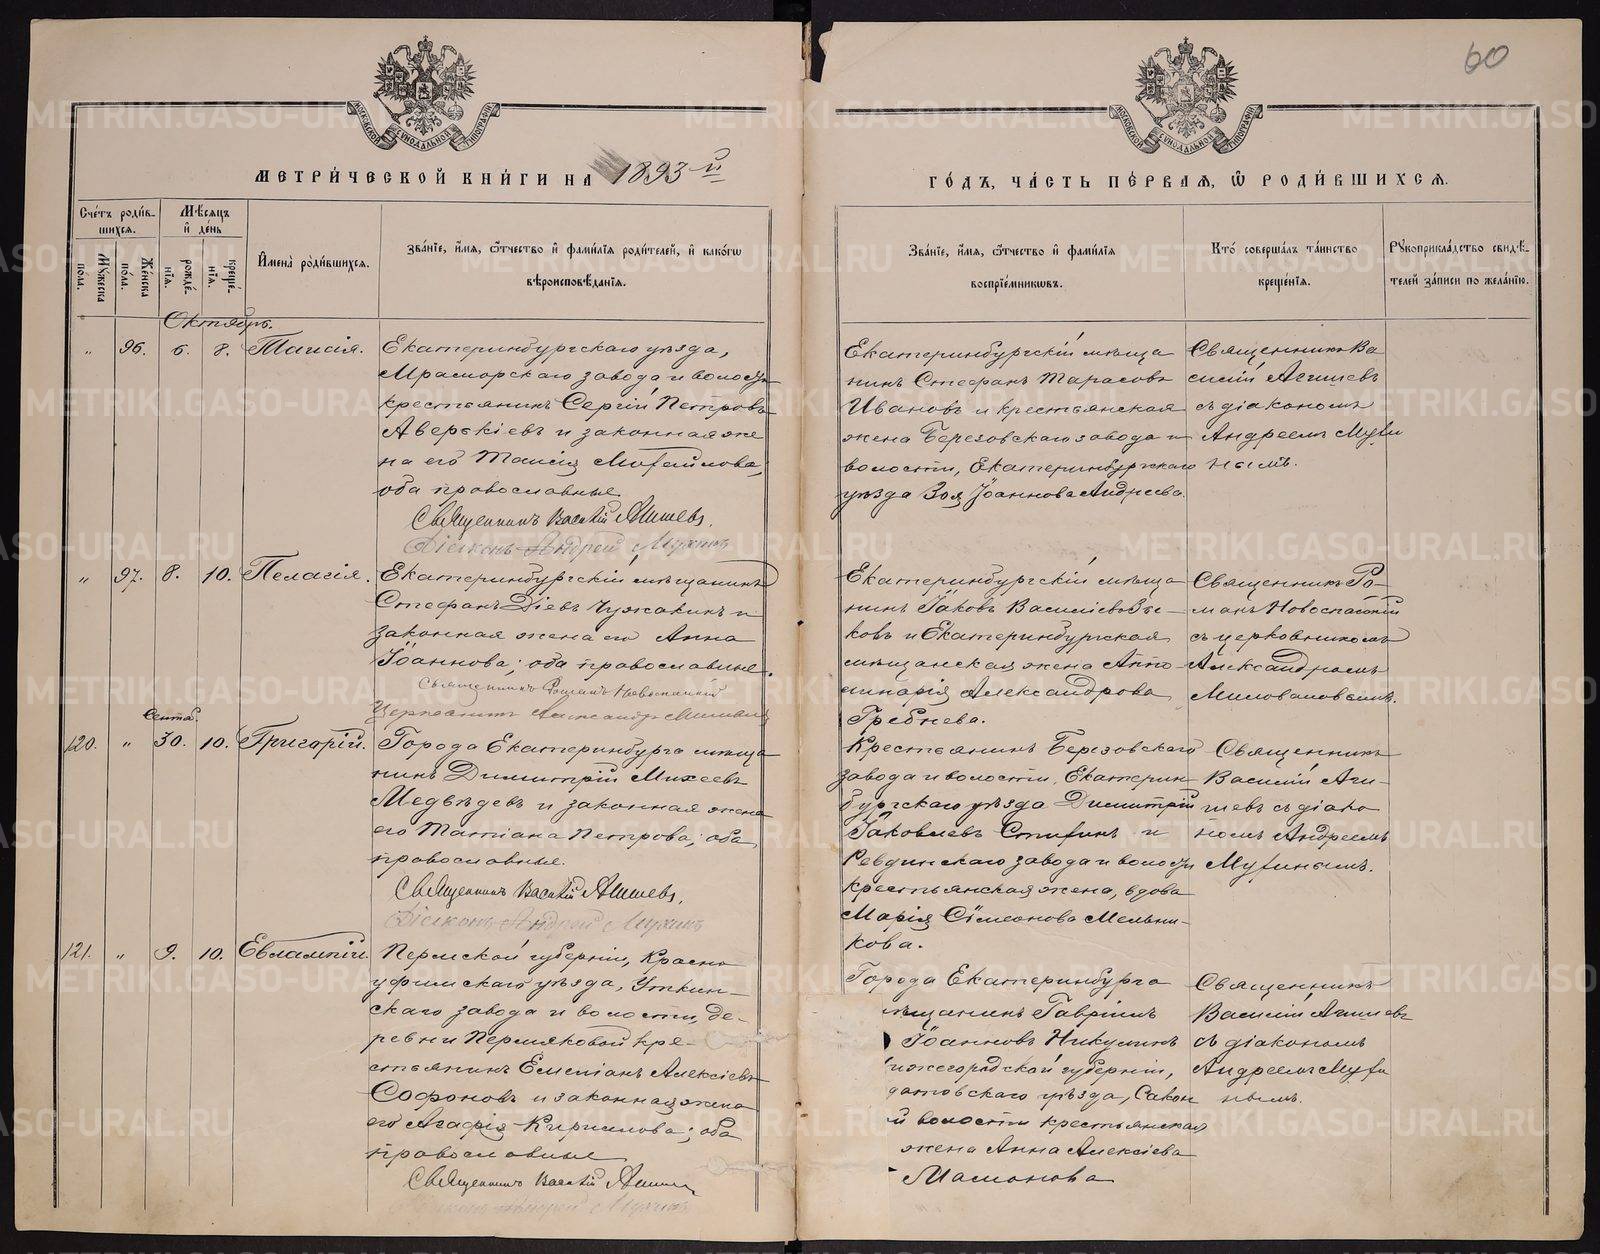 60
МОСКОВСКОЙ СѴНОДАЛЬНОЙ ТИПОГРАФІИ
МОСКОВСКОЙ СѴНОДАЛЬНОЙ ТИПОГРАФІИ
МЕТРИ́ЧЕСКОЙ КНИ́ГИ НА 1893 й
ГО́ДЪ, ЧА́СТЬ ПЕ́РВАЯ, Ѡ҆ РОДИ́ВШИХСЯ.
Сче́тъ роди́в-
шихся.
Мѣ́сяцъ
и҆ де́нь
Му́жеска
по́ла.
Же́нска
по́ла.
рожде́-
нїя.
креще́-
нїя.
И҆мена̀ роди́вшихся.
Зва́нїе, и҆́мя, ѻ҆́тчество и҆ фами́лїя роди́телей, и҆ како́гѡ
вѣроисповѣ́данїя.
Зва́нїе, и҆́мя, ѻ҆́тчество и҆ фами́лїя
воспрїе́мникѡвъ.
Кто̀ соверша́лъ та́инство
креще́нїя.
Рукоприкла́дство свидѣ́-
телей за́писи по жела́нїю.
Октябрь.
" 96. 6. 8. Таисія.
Екатеринбургскаго уѣзда,
Мраморскаго завода и волости
крестьянинъ Сергій Петровъ
Аверкіевъ и законная же
на его Таисія Михайлова,
оба православные.
Священникъ Василій Агишевъ.
Діаконъ Андрей Мухинъ
Екатеринбургскій мѣща
нинъ Стефанъ Тарасовъ
Ивановъ и крестьянская
жена Березовскаго завода и
волости, Екатеринбургскаго
уѣзда Зоя Іоаннова Андреева.
Священникъ Ва
силій Агишевъ
съ діакономъ
Андреемъ Мухи
нымъ.
" 97. 8. 10. Пелагія.
Екатеринбургскій мѣщанинъ
Стефанъ Діевъ Чужакинъ и
законная жена его Анна
Іоаннова; оба православные.
Священникъ Романъ Новоспасскій
Церковникъ Александръ
Екатеринбургскій мѣща
нинъ Іаковъ Василіевъ Зы-
ковъ и Екатеринбургская
мѣщанская жена Аппо
линарія Александрова
Гребнева.
Священникъ Ро-
манъ Новоспасскій
съ церковникомъ
Александромъ
Миловановымъ.
Сентяб.
120. " 30. 10. Григорій.
Города Екатеринбурга мѣща
нинъ Димитрій Михеевъ
Медвѣдевъ и законная жена
его Татіана Петрова; оба
православные.
Священникъ Василій Агишевъ.
Діаконъ Андрей Мухинъ
Крестьянинъ Березовскаго
завода и волости, Екатерин
бургскаго уѣзда Димитрій
Іаковлевъ Стихинъ и
Ревдинскаго завода и волости
крестьянская жена, вдова
Марія Сімеонова Мельни-
кова.
Священникъ
Василій Аги-
шевъ съ діако
номъ Андреемъ
Мухинымъ.
121. " 9. 10. Евлампій.
Пермской губерніи, Красно
уфимскаго уѣзда, Уткин-
скаго завода и волости, де-
ревни Пермяковой кре-
стьянинъ Емеліанъ Алексіевъ
Софоновъ и законная жена
его Агафія Кирилова; оба
православные
Священникъ Василій Агишев
Діаконъ Андрей Мухинъ
Города Екатеринбурга
мѣщанинъ Гавріилъ
Іоанновъ Никулинъ
нижегородской губерніи,
датовскаго уѣзда, Сакон
й волости крестьянская
жена Анна Алексіева
Мамонова
Священникъ
Василій Агишевъ
съ діакономъ
Андреемъ Мухи
нымъ.
METRIKI.GASO-URAL.RU